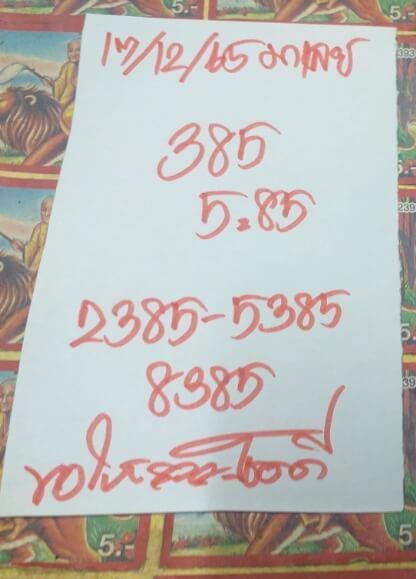 17/12/65 มาเลย์
385
5:85
2385-5385
8385
ขอให้ โชคดี
5.-
5.-
393
239
5.-
5.-